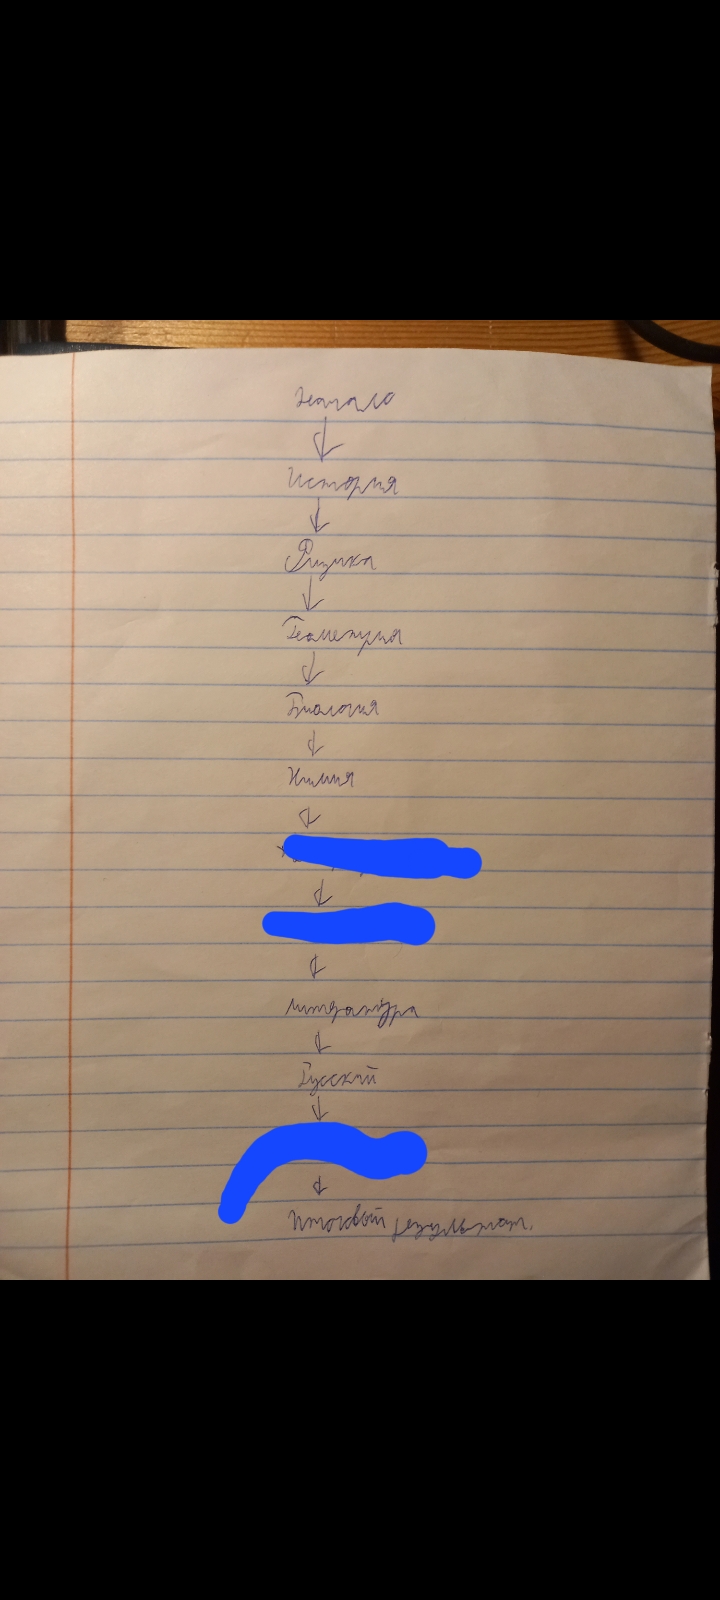 Начало
История
Физика
Геометрия
Биология
Химия
литература
Русский
Итоговый результат.